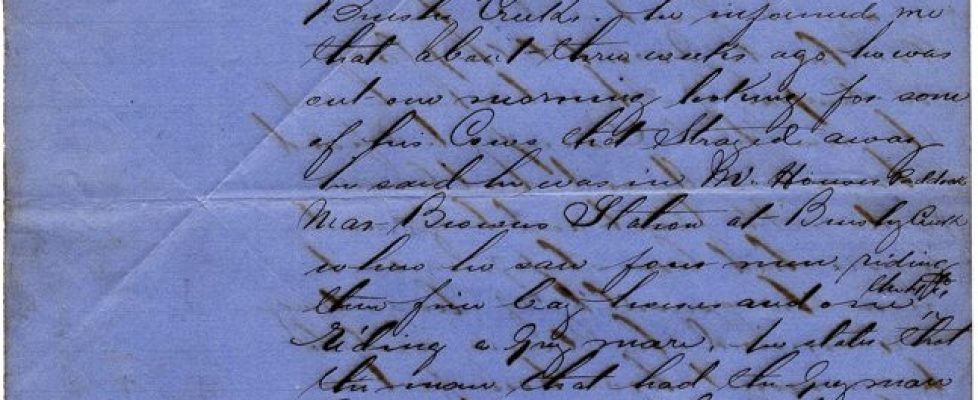 Brushy Creeks. he informed me
that about three weeks ago he was
out one morning looking for some
of his Cows that Strayed away
he said he was in Mr. Houses Paddock
Near Browns Station at Brushy Creek
when he saw four men riding
three fine bay horses and one
Riding a Grey mare, he states that
the man that had the Grey mare